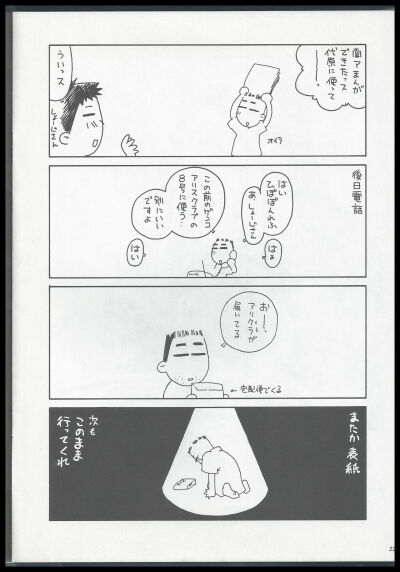 闇アまんが
できたっス
代原に使って
うぃっス
しょーじさん
オイラ
後日電話
はい
ひぽぽんれふ
あ、しょーじさん
はぁ
この前のゲンコ
アリスクラブの
8号に使う…
別にいい
ですよ
はい
おー、
アリクラが
届いてる
←宅配便でくる
またか表紙
次も
このまま
行ってくれ